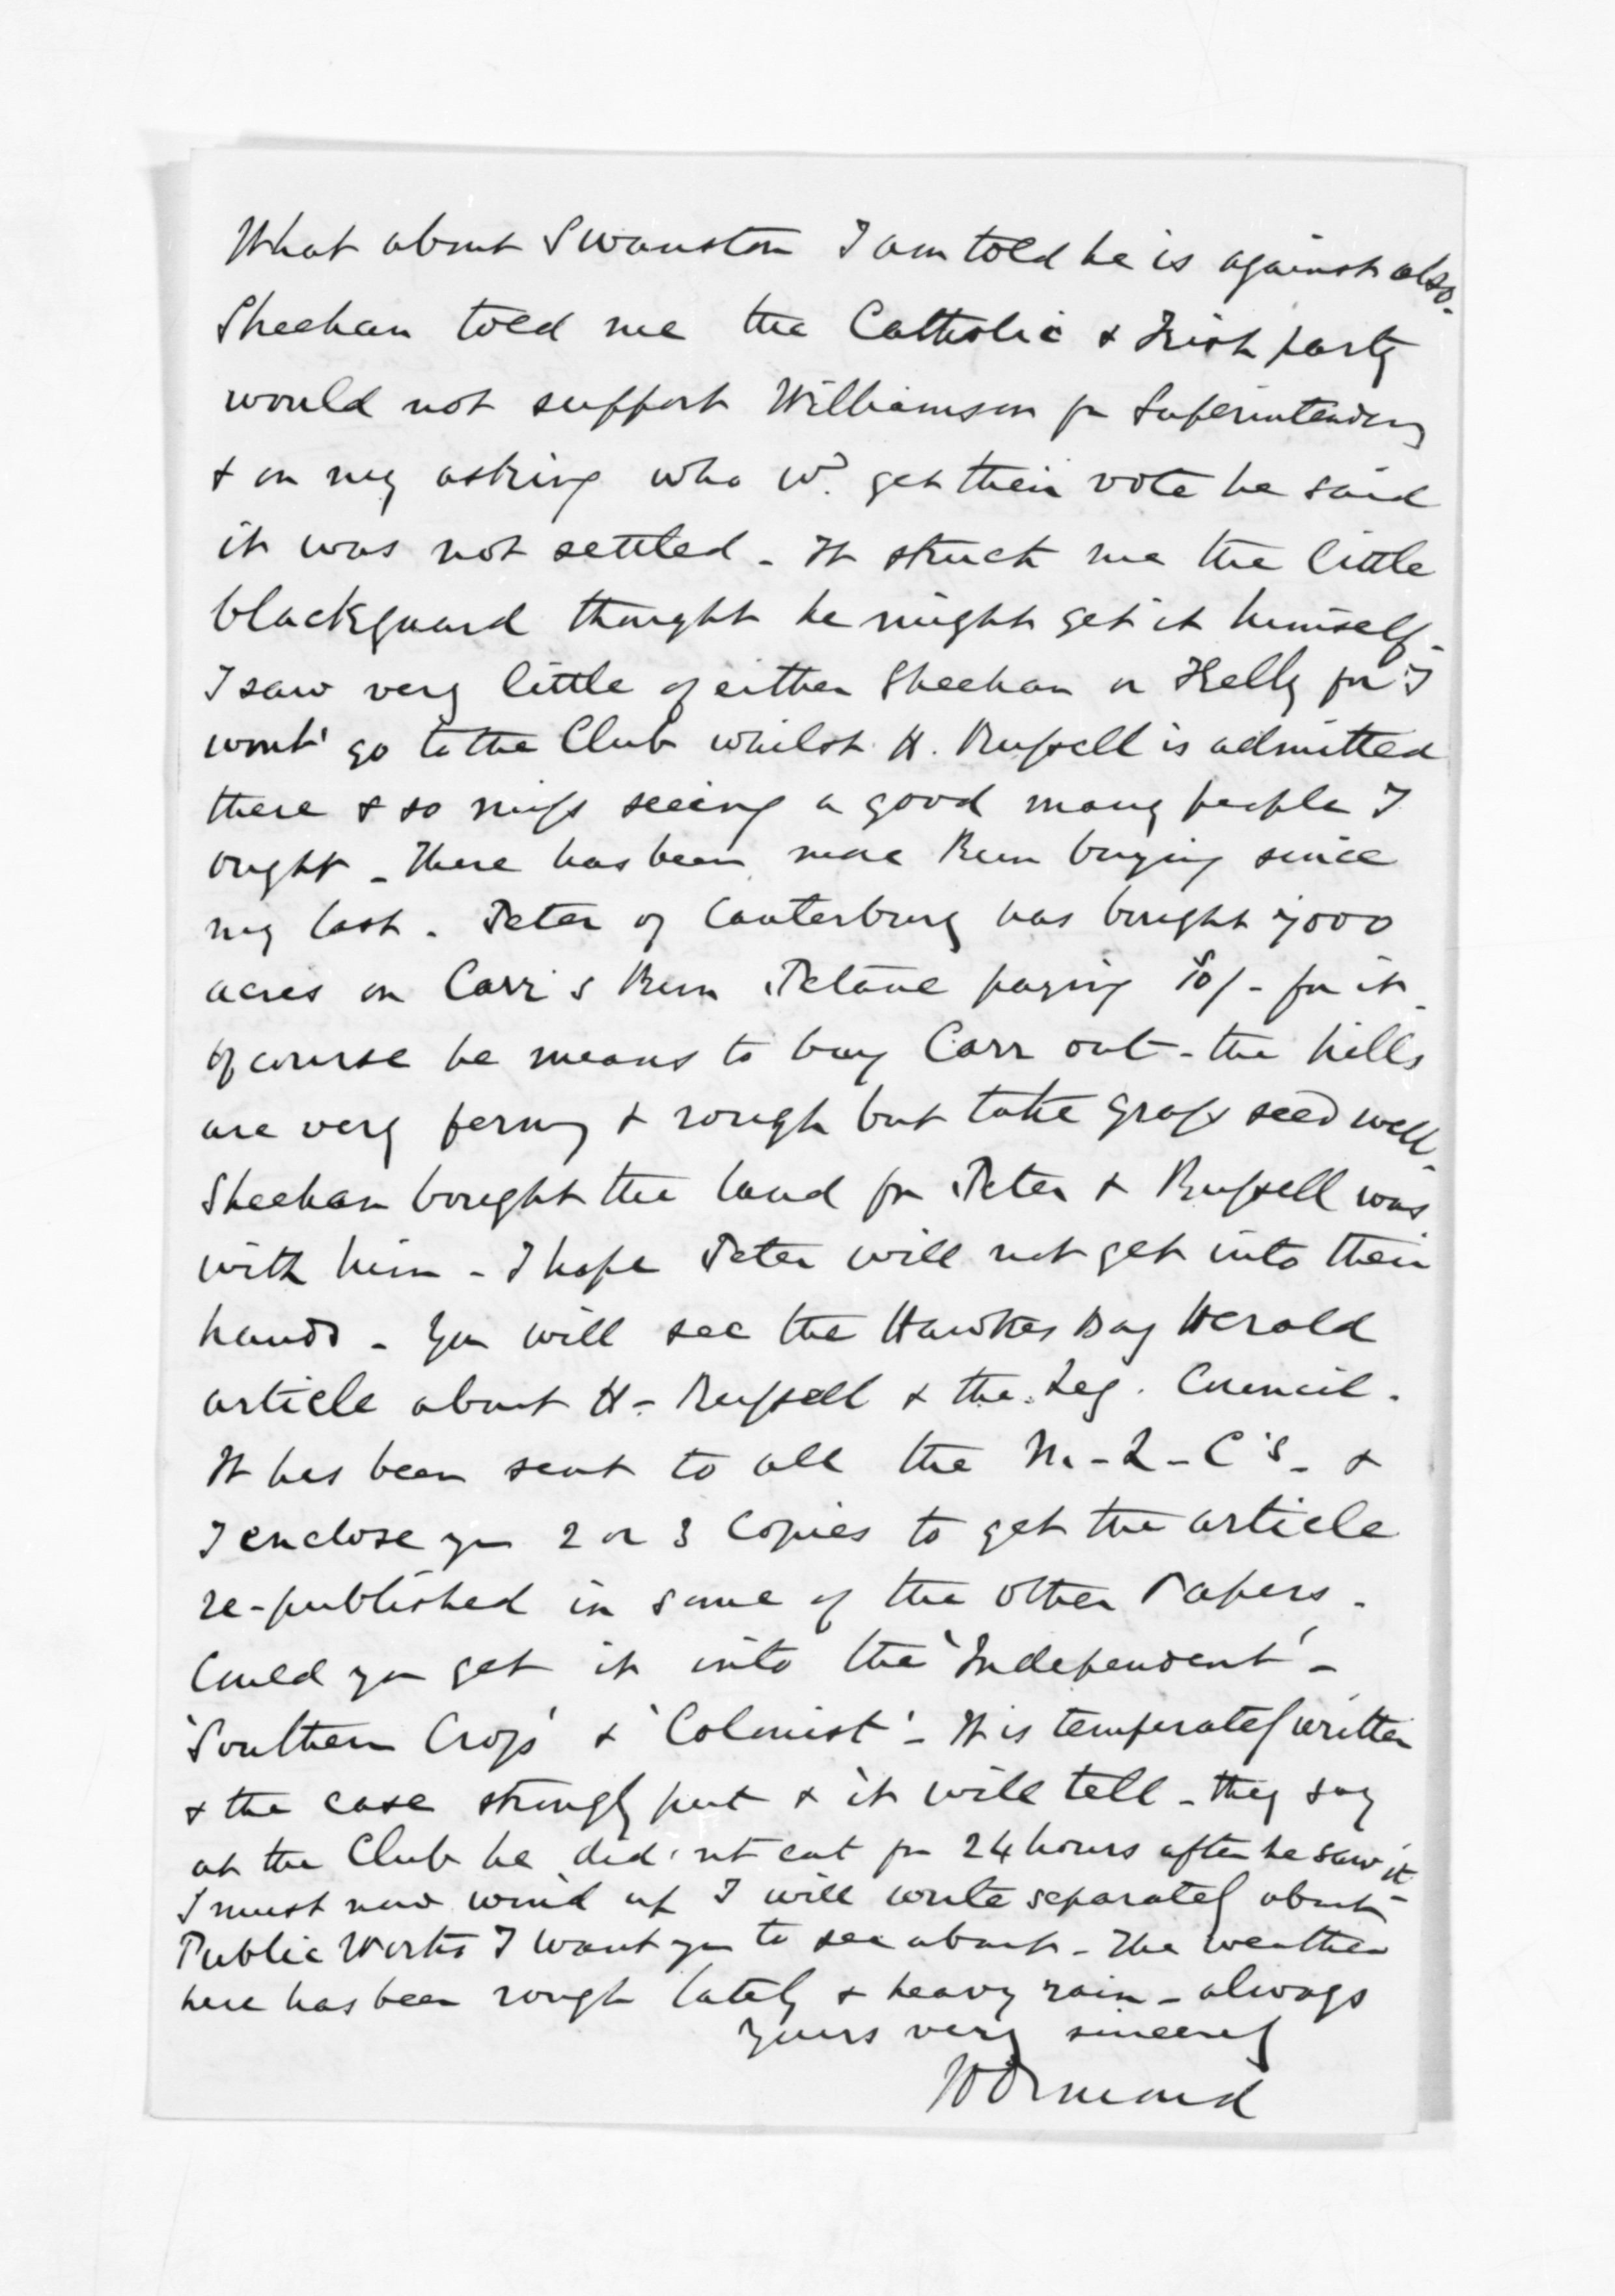 What about Swanston I am told he is against also.
Sheehan told me the Catholic & Irish party
would not support Williamson for Superintendency
& on my asking who wd. get their vote he said
it was not settled - It struck me the little
blackguard thought he might get it himself -
I saw very little of either Sheehan or Kelly for I
wont' go to the Club whilst H. Russell is admitted
there & so miss seeing a good many people I
ought - There has been more Run buying since
my last - Peter of Canterbury has bought 7000
acres on Carr's Run Petane paying 10/- for it -
Of course he means to buy Carr out - the hills
are very ferny & rough but take grass seed well -
Sheehan bought the land for Peter & Russell was
with him - I hope Peter will not get into their
hands - You will see the Hawkes Bay Herald
article about H - Russell & the Leg. Council -
It has been sent to all the M - L - C's - &
I enclose you 2 or 3 Copies to get the article
re-published in some of the other Papers -
Could you get it into the 'Independent' -
'Southern Cross' & 'Colonist' - It is temperately written
& the case strongly put & it will tell - they say
at the Club he did'nt eat for 24 hours after he saw it -
I must now wind up I will write separately about
Public Works I want you to see about - The weather
here has been rough lately & heavy rain - always
yours very sincerely
JD Ormond